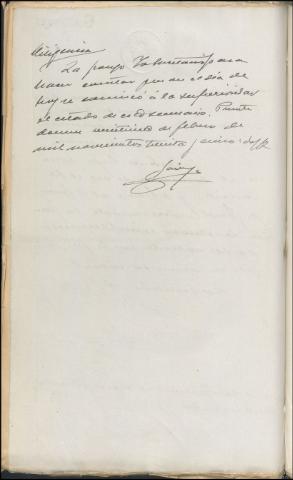 Diligencia
La pongo yo
hacer constar que en el dia de
hoy se remitió á la superioridad
el estado de este sumario. Puente
veintiuno de febro de
mil novecientos treinta y cinco: doy fé